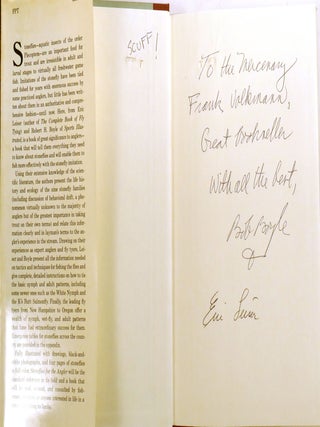 FPT
Stoneflies—aquatic insects of the order
Plecoptera—are an important food for
trout and are irresistible in adult and
larval stages to virtually all freshwater game
fish. Imitations of the stonefly have been tied
and fished for years with enormous success by
some practiced anglers, but little has been writ-
ten about them in an authoritative and compre-
hensive fashion—until now. Here, Eric
Leiser (author of The Complete Book of Fly
Tying) and Robert H. Boyle of Sports Illus-
trated) is a book of great significance to anglers—
a book that will tell them everything they need
to know about stoneflies and will enable them to
fish more effectively with the stonefly imitation.
Using their extensive knowledge of the
scientific literature, the authors present the life his-
tory and ecology of the nine stonefly families
(including discussion of behavioral drift, a phe-
nomenon virtually unknown to the majority of
anglers but of the greatest importance in taking
trout on their own terms) and relate this infor-
mation clearly and in layman's terms to the an-
gler's experience in the stream. Drawing on their
experience as expert anglers and fly tyers,
Leiser and Boyle present all the information needed
on tactics and techniques for fishing the flies and
give complete, detailed instructions on how to tie
the basic nymph and adult patterns, including
some newer ones such as the White Nymph and
the K's Butt Salmonfly. Finally, the leading fly
tyers from New Hampshire to Oregon offer a
wealth of nymph, wet-fly, and adult patterns
that have had extraordinary success for them.
Emergence tables for stoneflies across the coun-
try are provided in the appendix.
Fully illustrated with drawings, black-and-
white photographs, and four pages of stoneflies
in full color, Stoneflies for the Angler will be the
SCUFF!
To the Mercenary
Frank Volkmann,
Great bookseller
With all the best,
Bob Boyle
Eric Leiser